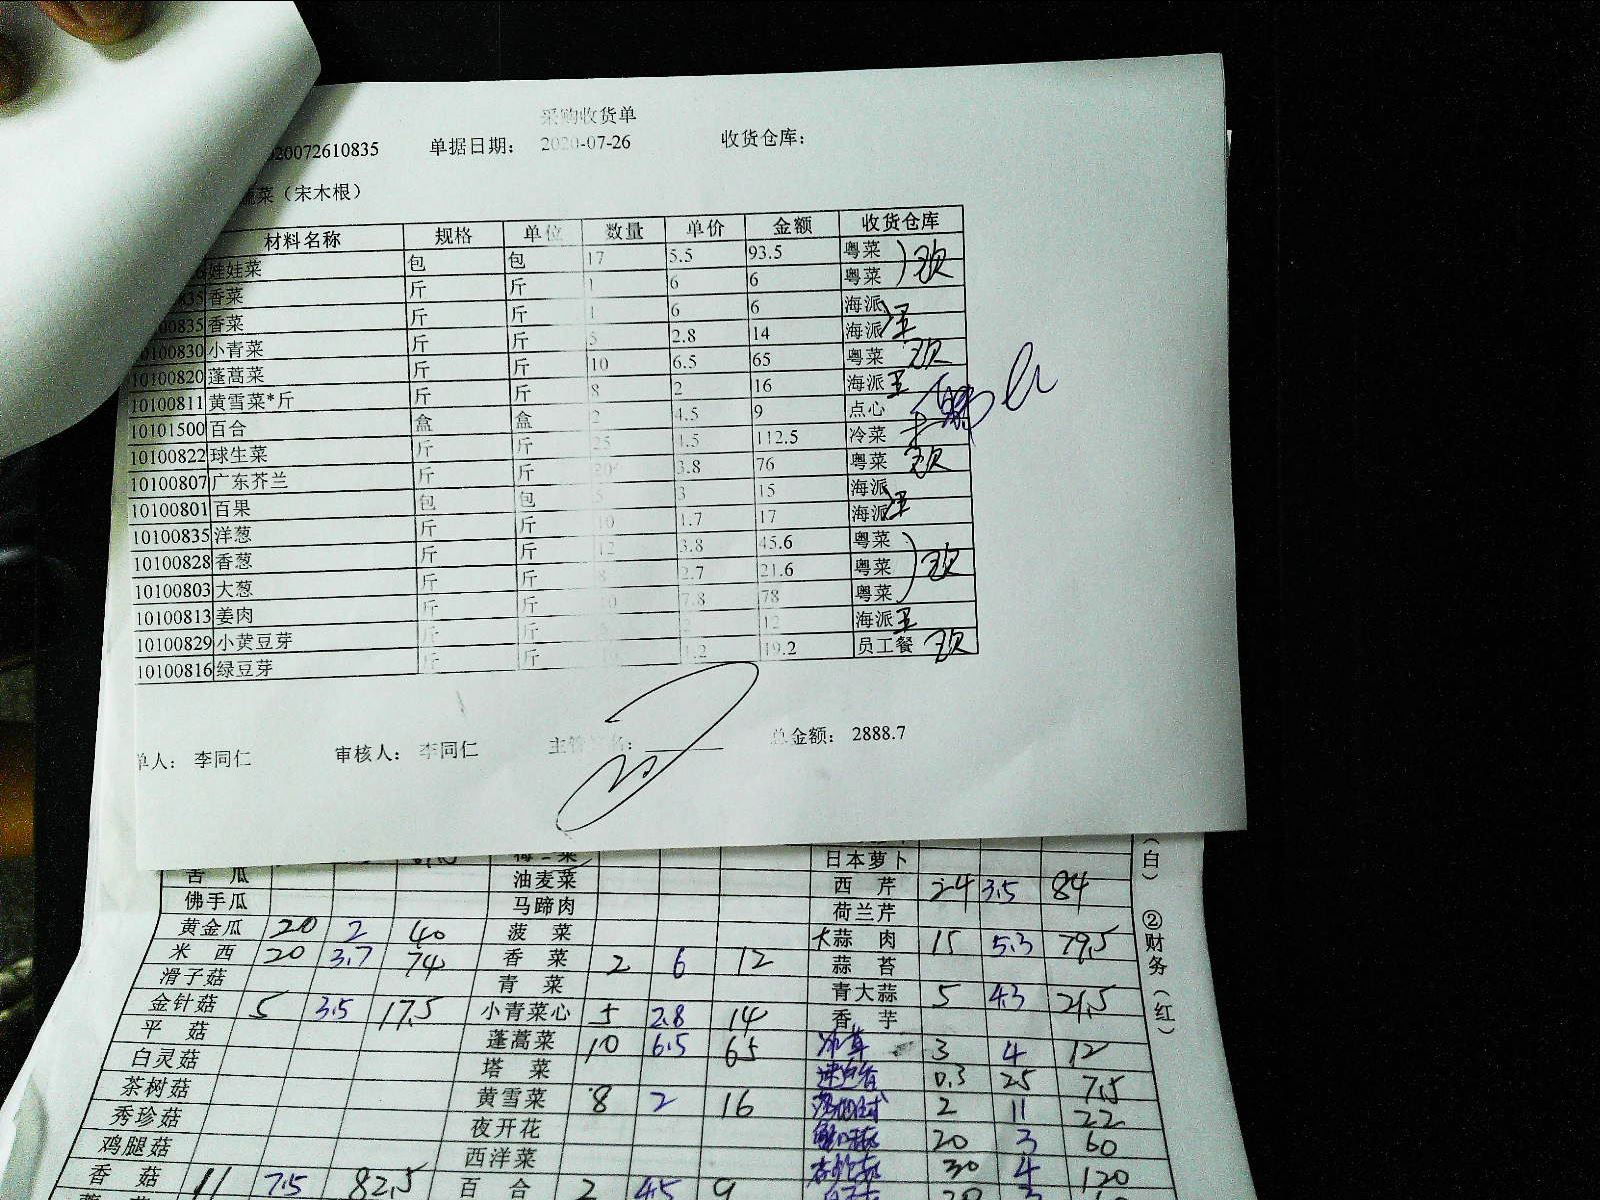 采购收货单
20072610835 单据日期： 2020-07-26 收货仓库：
蔬菜（宋木根）
材料名称 规格 单位 数量 单价 金额 收货仓库
娃娃菜 包 包 17 5.5 93.5 粤菜
香菜 斤 斤 1 6 6 粤菜
0835 香菜 斤 斤 1 6 6 海派
10100830 小青菜 斤 斤 5 2.8 14 海派
10100820 蓬蒿菜 斤 斤 10 6.5 65 粤菜
10100811 黄雪菜*斤 斤 斤 8 2 16 海派
10101500 百合 盒 盒 2 4.5 9 点心
10100822 球生菜 斤 斤 25 4.5 112.5 冷菜
10100807 广东芥兰 斤 斤 20 3.8 76 粤菜
10100801 百果 包 包 5 3 15 海派
10100835 洋葱 斤 斤 10 1.7 17 海派
10100828 香葱 斤 斤 12 3.8 45.6 粤菜
10100803 大葱 斤 斤 8 2.7 21.6 粤菜
10100813 姜肉 斤 斤 10 7.8 78 粤菜
10100829 小黄豆芽 斤 斤 2 12 海派
10100816 绿豆芽 斤 斤 1.2 19.2 员工餐
单人： 李同仁 审核人： 李同仁 主管签名： 总金额： 2888.7
日本萝卜
苦 瓜 油麦菜 西 芹 24 3.5 84
佛手瓜 马蹄肉 荷兰芹
黄金瓜 20 2 40 菠 菜 大蒜 肉 15 5.3 79.5
米 西 20 3.7 74 香 菜 2 6 12 蒜 苔
滑子菇 青 菜 青大蒜 5 4.3 21.5
金针菇 5 3.5 17.5 小青菜心 5 2.8 14 香 芋
平 菇 蓬蒿菜 10 6.5 65 冰草 3 4 12
白灵菇 塔 菜 0.3 25 7.5
茶树菇 黄雪菜 8 2 16 2 11 22
秀珍菇 夜开花 20 3 60
鸡腿菇 西洋菜 30 4 120
香 菇 11 7.5 82.5 百 合 2 4.5 9
（白） ②财务（红）